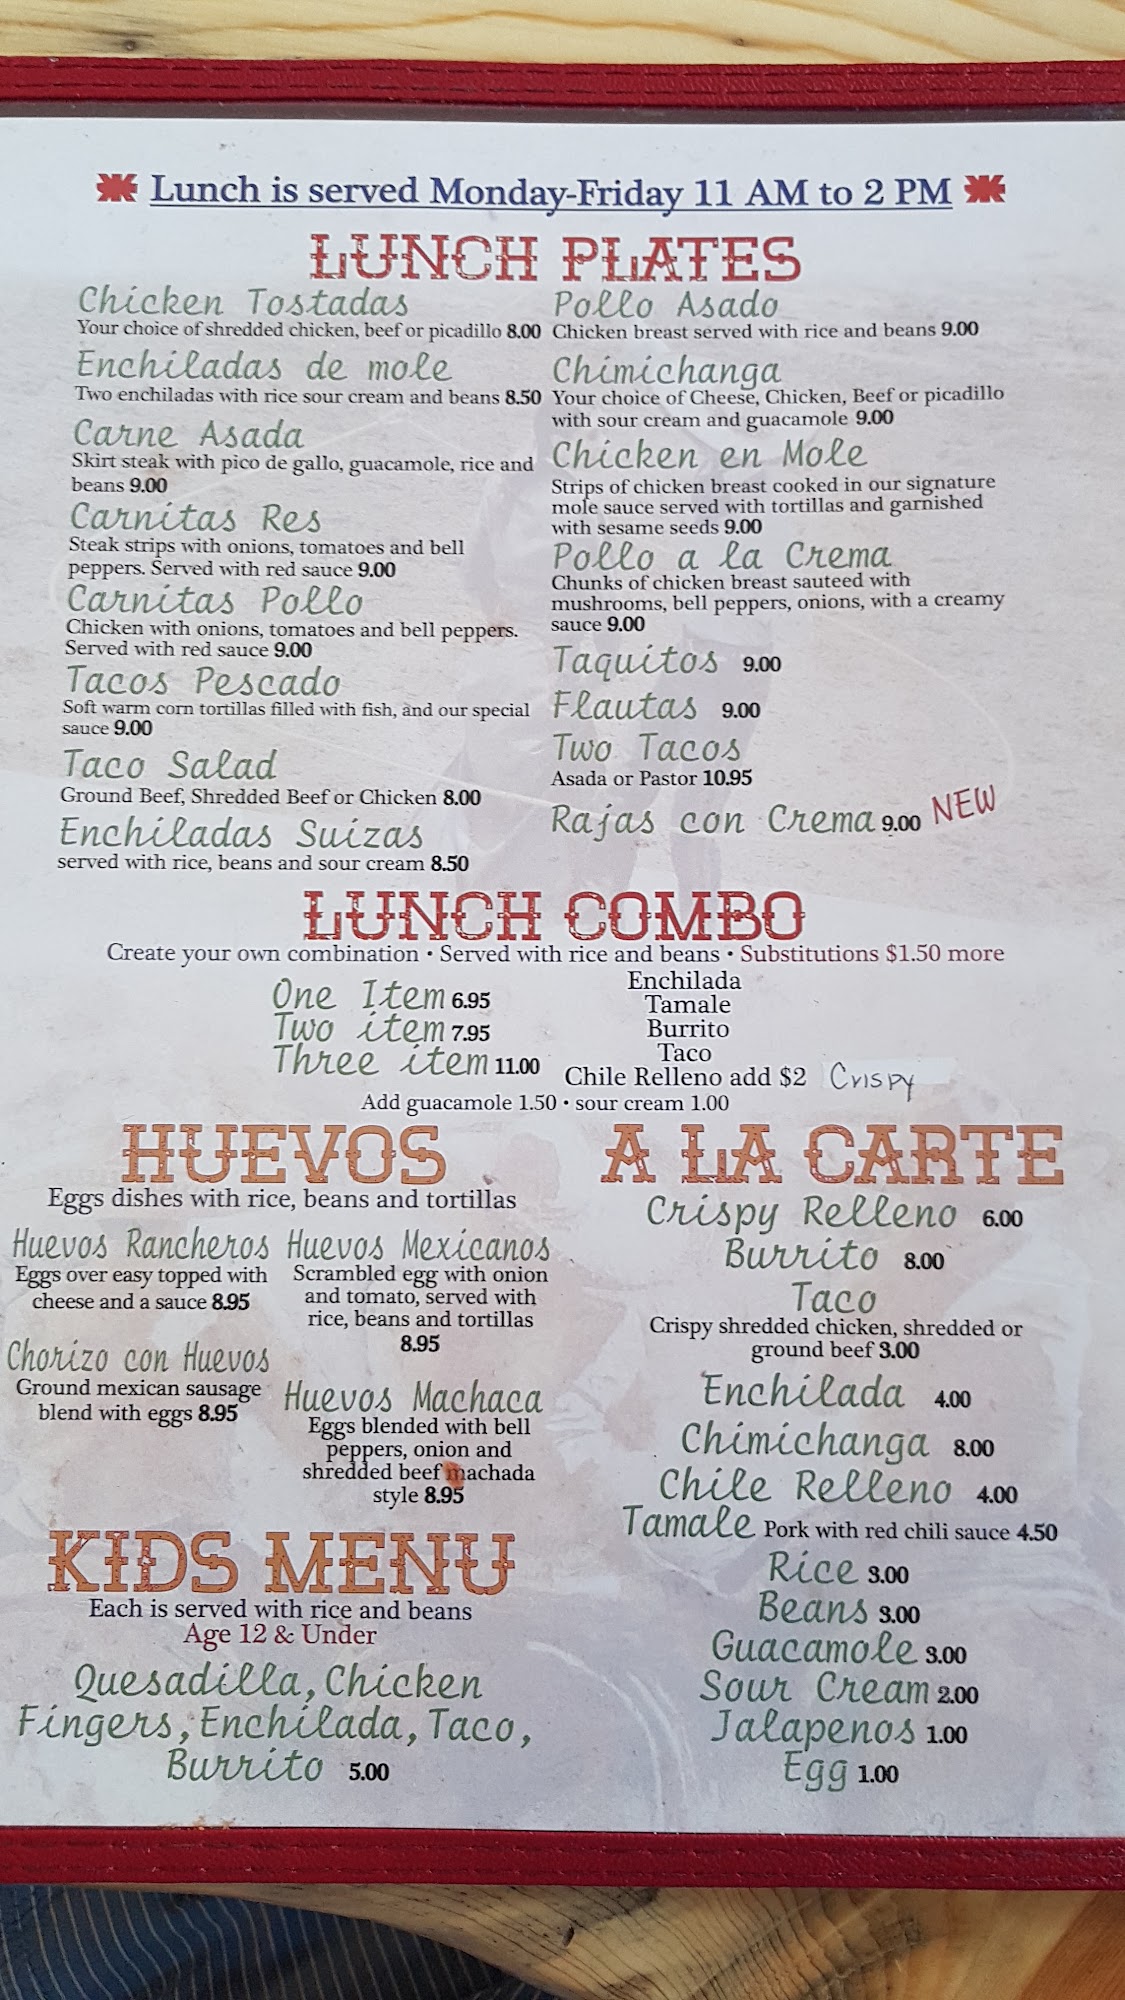 Lunch is served Monday-Friday 11 AM to 2 PM
LUNCH PLATES
Chicken Tostadas
Your choice of shredded chicken, beef or picadillo 8.00
Enchiladas de mole
Two enchiladas with rice sour cream and beans 8.50
Carne Asada
Skirt steak with pico de gallo, guacamole, rice and
beans 9.00
Carnitas Res
Steak strips with onions, tomatoes and bell
peppers. Served with red sauce 9.00
Carnitas Pollo
Chicken with onions, tomatoes and bell peppers.
Served with red sauce 9.00
Tacos Pescado
Soft warm corn tortillas filled with fish, and our special
sauce 9.00
Taco Salad
Ground Beef, Shredded Beef or Chicken 8.00
Enchiladas Suizas
served with rice, beans and sour cream 8.50
Pollo Asado
Chicken breast served with rice and beans 9.00
Chimichanga
Your choice of Cheese, Chicken, Beef or picadillo
with sour cream and guacamole 9.00
Chicken en Mole
Strips of chicken breast cooked in our signature
mole sauce served with tortillas and garnished
with sesame seeds 9.00
Pollo a la Crema
Chunks of chicken breast sauteed with
mushrooms, bell peppers, onions, with a creamy
sauce 9.00
Taquitos 9.00
Flautas 9.00
Two Tacos
Asada or Pastor 10.95
Rajas con Crema 9.00 NEW
LUNCH COMBO
Create your own combination • Served with rice and beans • Substitutions $1.50 more
One Item 6.95
Two item 7.95
Three item 11.00
Enchilada
Tamale
Burrito
Taco
Chile Relleno add $2 Crispy
Add guacamole 1.50 • sour cream 1.00
HUEVOS
Eggs dishes with rice, beans and tortillas
Huevos Rancheros
Eggs over easy topped with
cheese and a sauce 8.95
Chorizo con Huevos
Ground mexican sausage
blend with eggs 8.95
Huevos Mexicanos
Scrambled egg with onion
and tomato, served with
rice, beans and tortillas
8.95
Huevos Machaca
Eggs blended with bell
peppers, onion and
shredded beef machada
style 8.95
KIDS MENU
Each is served with rice and beans
Age 12 & Under
Quesadilla, Chicken
Fingers, Enchilada, Taco,
Burrito 5.00
A LA CARTE
Crispy Relleno 6.00
Burrito 8.00
Taco
Crispy shredded chicken, shredded or
ground beef 3.00
Enchilada 4.00
Chimichanga 8.00
Chile Relleno 4.00
Tamale Pork with red chili sauce 4.50
Rice 3.00
Beans 3.00
Guacamole 3.00
Sour Cream 2.00
Jalapenos 1.00
Egg 1.00